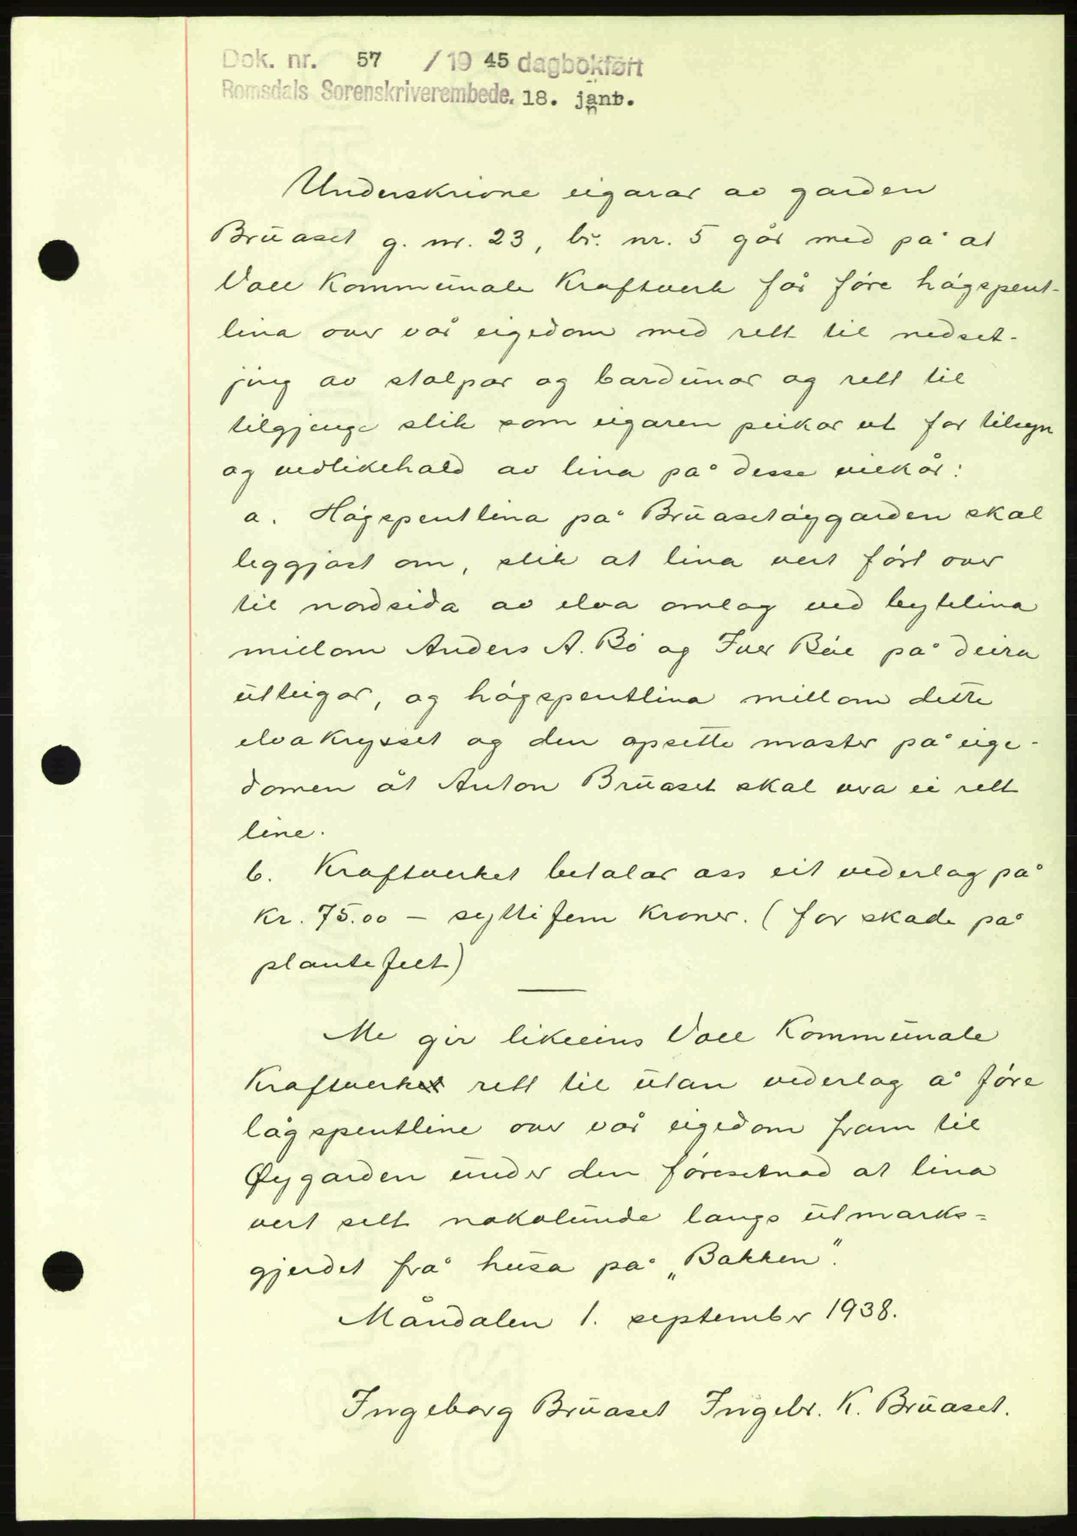 Dok. nr. 57 / 1945 dagbokført
Romsdals Sorenskriverembede. 18. jan.
Underskrivne eigarar av garden
Brüaset g. nr. 23, br. nr. 5 går med på at
Voll Kommünale Kraftverk får føre høgspent-
lina over vår eigedom med rett til nedset-
jing av stolpar og bardünar og rett til
tilgjenge slik som eigaren peikar ut for tilsyn
og vedlikehald av lina på desse vilkår:
a. Høgspentlina på Brüasetøygarden skal
leggjast om, slik at lina vert ført over
til nordsida av elva omlag ved bytelina
millom Anders A. Bø og Iver Bøe på deira
ütteigar, og høgspentlina millom dette
elvakrysset og den opsette master på eige-
domen åt Anton Brüaset skal vera ei rett
line.
b. Kraftverket betalar oss eit vederlag på
Kr. 75.00 – sytti fem Kroner. (for skade på
plantefelt)
Me gir likeeins Voll Kommünale
Kraftverk rett til ütan vederlag å føre
lågspentline over vår eigedom fram til
Øygarden ünder den føresetnad at lina
vert sett nokolünde langs ütmarks-
gjerdet frå hüsa på „Bakken".
Måndalen 1. september 1938.
Ingeborg Brüaset Ingebr. K. Brüaset.